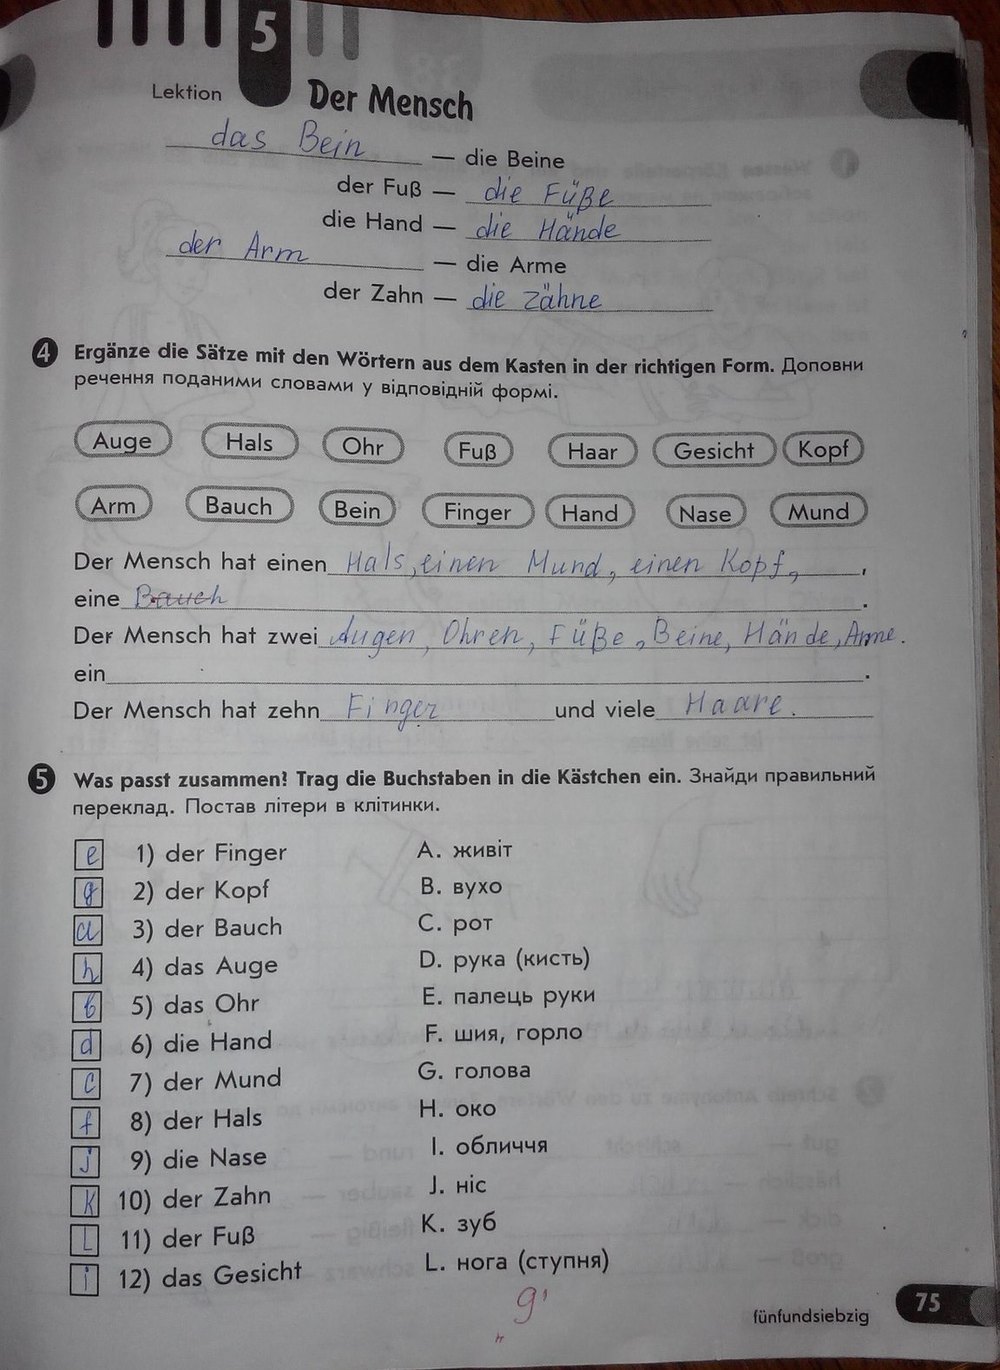 5
Lektion Der Mensch
das Bein — die Beine
der Fuß — die Füße
die Hand — die Hände
der Arm — die Arme
der Zahn — die Zähne
4 Ergänze die Sätze mit den Wörtern aus dem Kasten in der richtigen Form. Доповни
речення поданими словами у відповідній формі.
Auge Hals Ohr Fuß Haar Gesicht Kopf
Arm Bauch Bein Finger Hand Nase Mund
Der Mensch hat einen Hals, einen Mund, einen Kopf, ,
eine Bauch .
Der Mensch hat zwei Augen, Ohren, Füße, Beine, Hände, Arme.
ein .
Der Mensch hat zehn Finger und viele Haare.
5 Was passt zusammen? Trag die Buchstaben in die Kästchen ein. Знайди правильний
переклад. Постав літери в клітинки.
e 1) der Finger A. живіт
g 2) der Kopf B. вухо
a 3) der Bauch C. рот
h 4) das Auge D. рука (кисть)
b 5) das Ohr E. палець руки
d 6) die Hand F. шия, горло
c 7) der Mund G. голова
f 8) der Hals H. око
j 9) die Nase I. обличчя
k 10) der Zahn J. ніс
L 11) der Fuß K. зуб
i 12) das Gesicht L. нога (ступня)
9
fünfundsiebzig 75